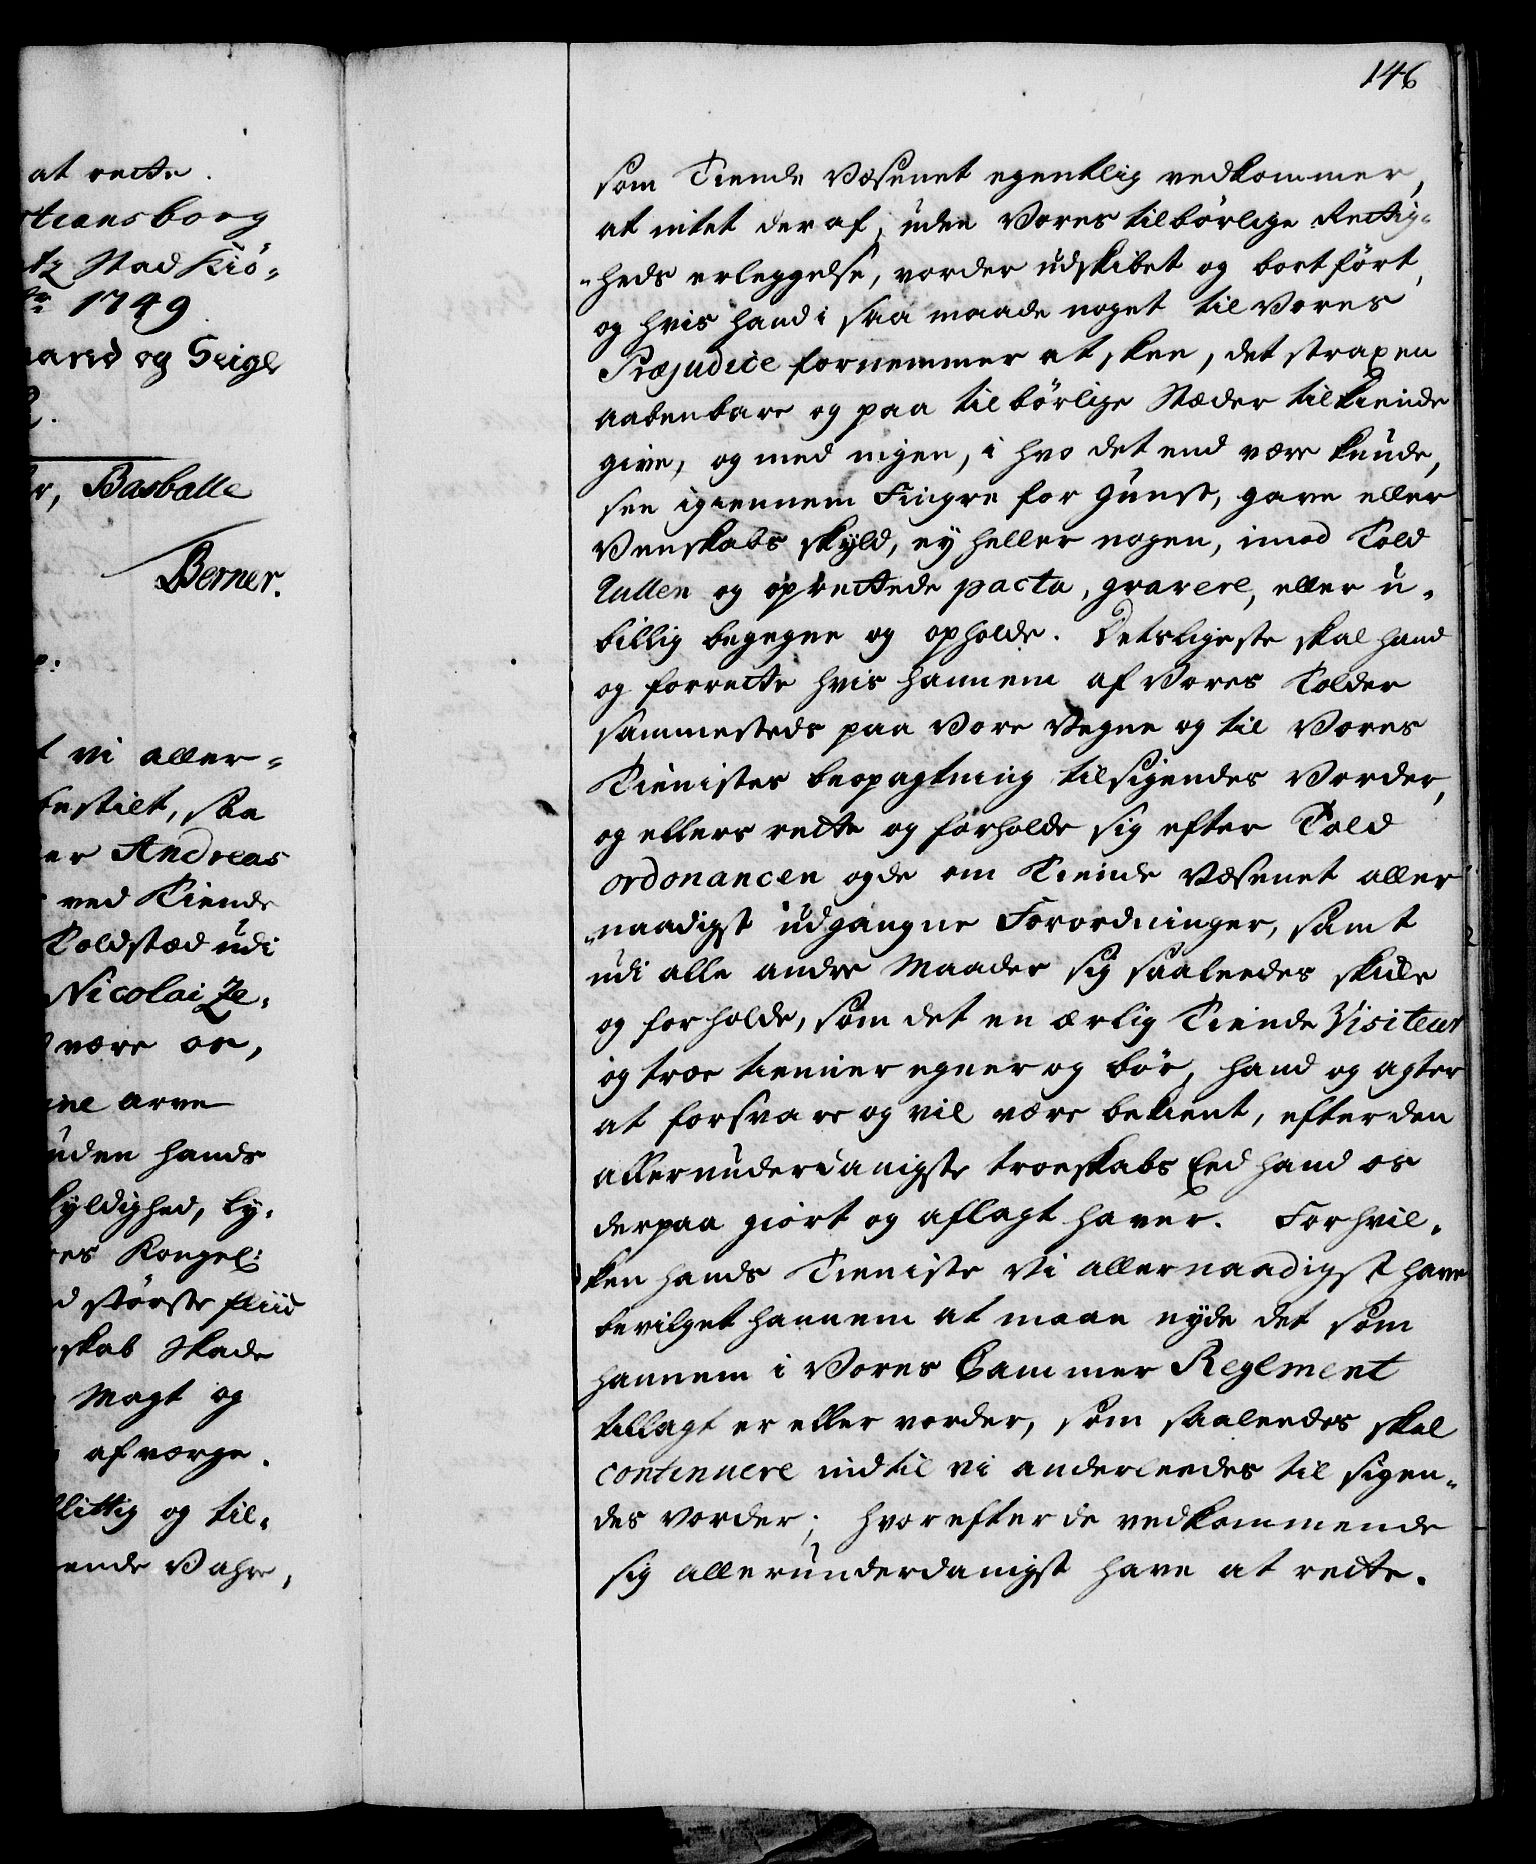 146
at rette.
tiansborg
Stad Kiö-
1749
og Seigl
Basballe
Berner.
vi aller-
bestilt, saa
er Andreas
ved Tiende
Toldstæd udi
Nicolai Ze-
være os,
arve
uden hands
yldighed, ly-
es Kongel:
d störste fliid
skab Skade
Magt og
afværge.
flittig og til-
ende Vahre,
som Tiende Væsenet egentlig vedkommer,
at intet deraf, uden Vores tilbörlige Rettig-
heds erleggelse, vorder udskibet og bortfört,
og hvis hand i saa maade noget til Vores
Præjudice fornemmer at skee, det straxen
aabenbare og paa tilbörlige Stæder tilkiende
give, og med ingen, i hvo det end være kunde,
see igiennem Fingre for Gunst, gave eller
Venskabs skyld, ey heller nogen, imod Told
Rullen og oprettede pacta, gravere, eller u-
billig begegne og opholde. Desligeste skal hand
og forrette hvis hannem af Vores Tolder
sammesteds paa Vore Vegne og til Vores
Tienistes beopagtning tilsigendes Vorder,
og ellers rette og forholde sig efter Told
ordonancen og de om Tiende Væsenet aller-
naadigst udgangne Forordninger, samt
udi alle andre Maader sig saaleedes skicke
og forholde, som det en ærlig Tiende Visiteur
og troe tienner egner og bör, hand og agter
at forsvare og vil være bekient, efter den
allerunderdanigste troeskabs Eed hand os
derpaa giört og aflagt haver. For hvil-
ken hands Tieniste Vi allernaadigst have
bevilget hannem at maae nyde det som
hannem i Vores Cammer Reglement
tillagt er eller vorder, som saaleedes skal
continuere indtil vi anderleedes til sigen-
des vorder; hvorefter de vedkommende
sig allerunderdanigst have at rette.